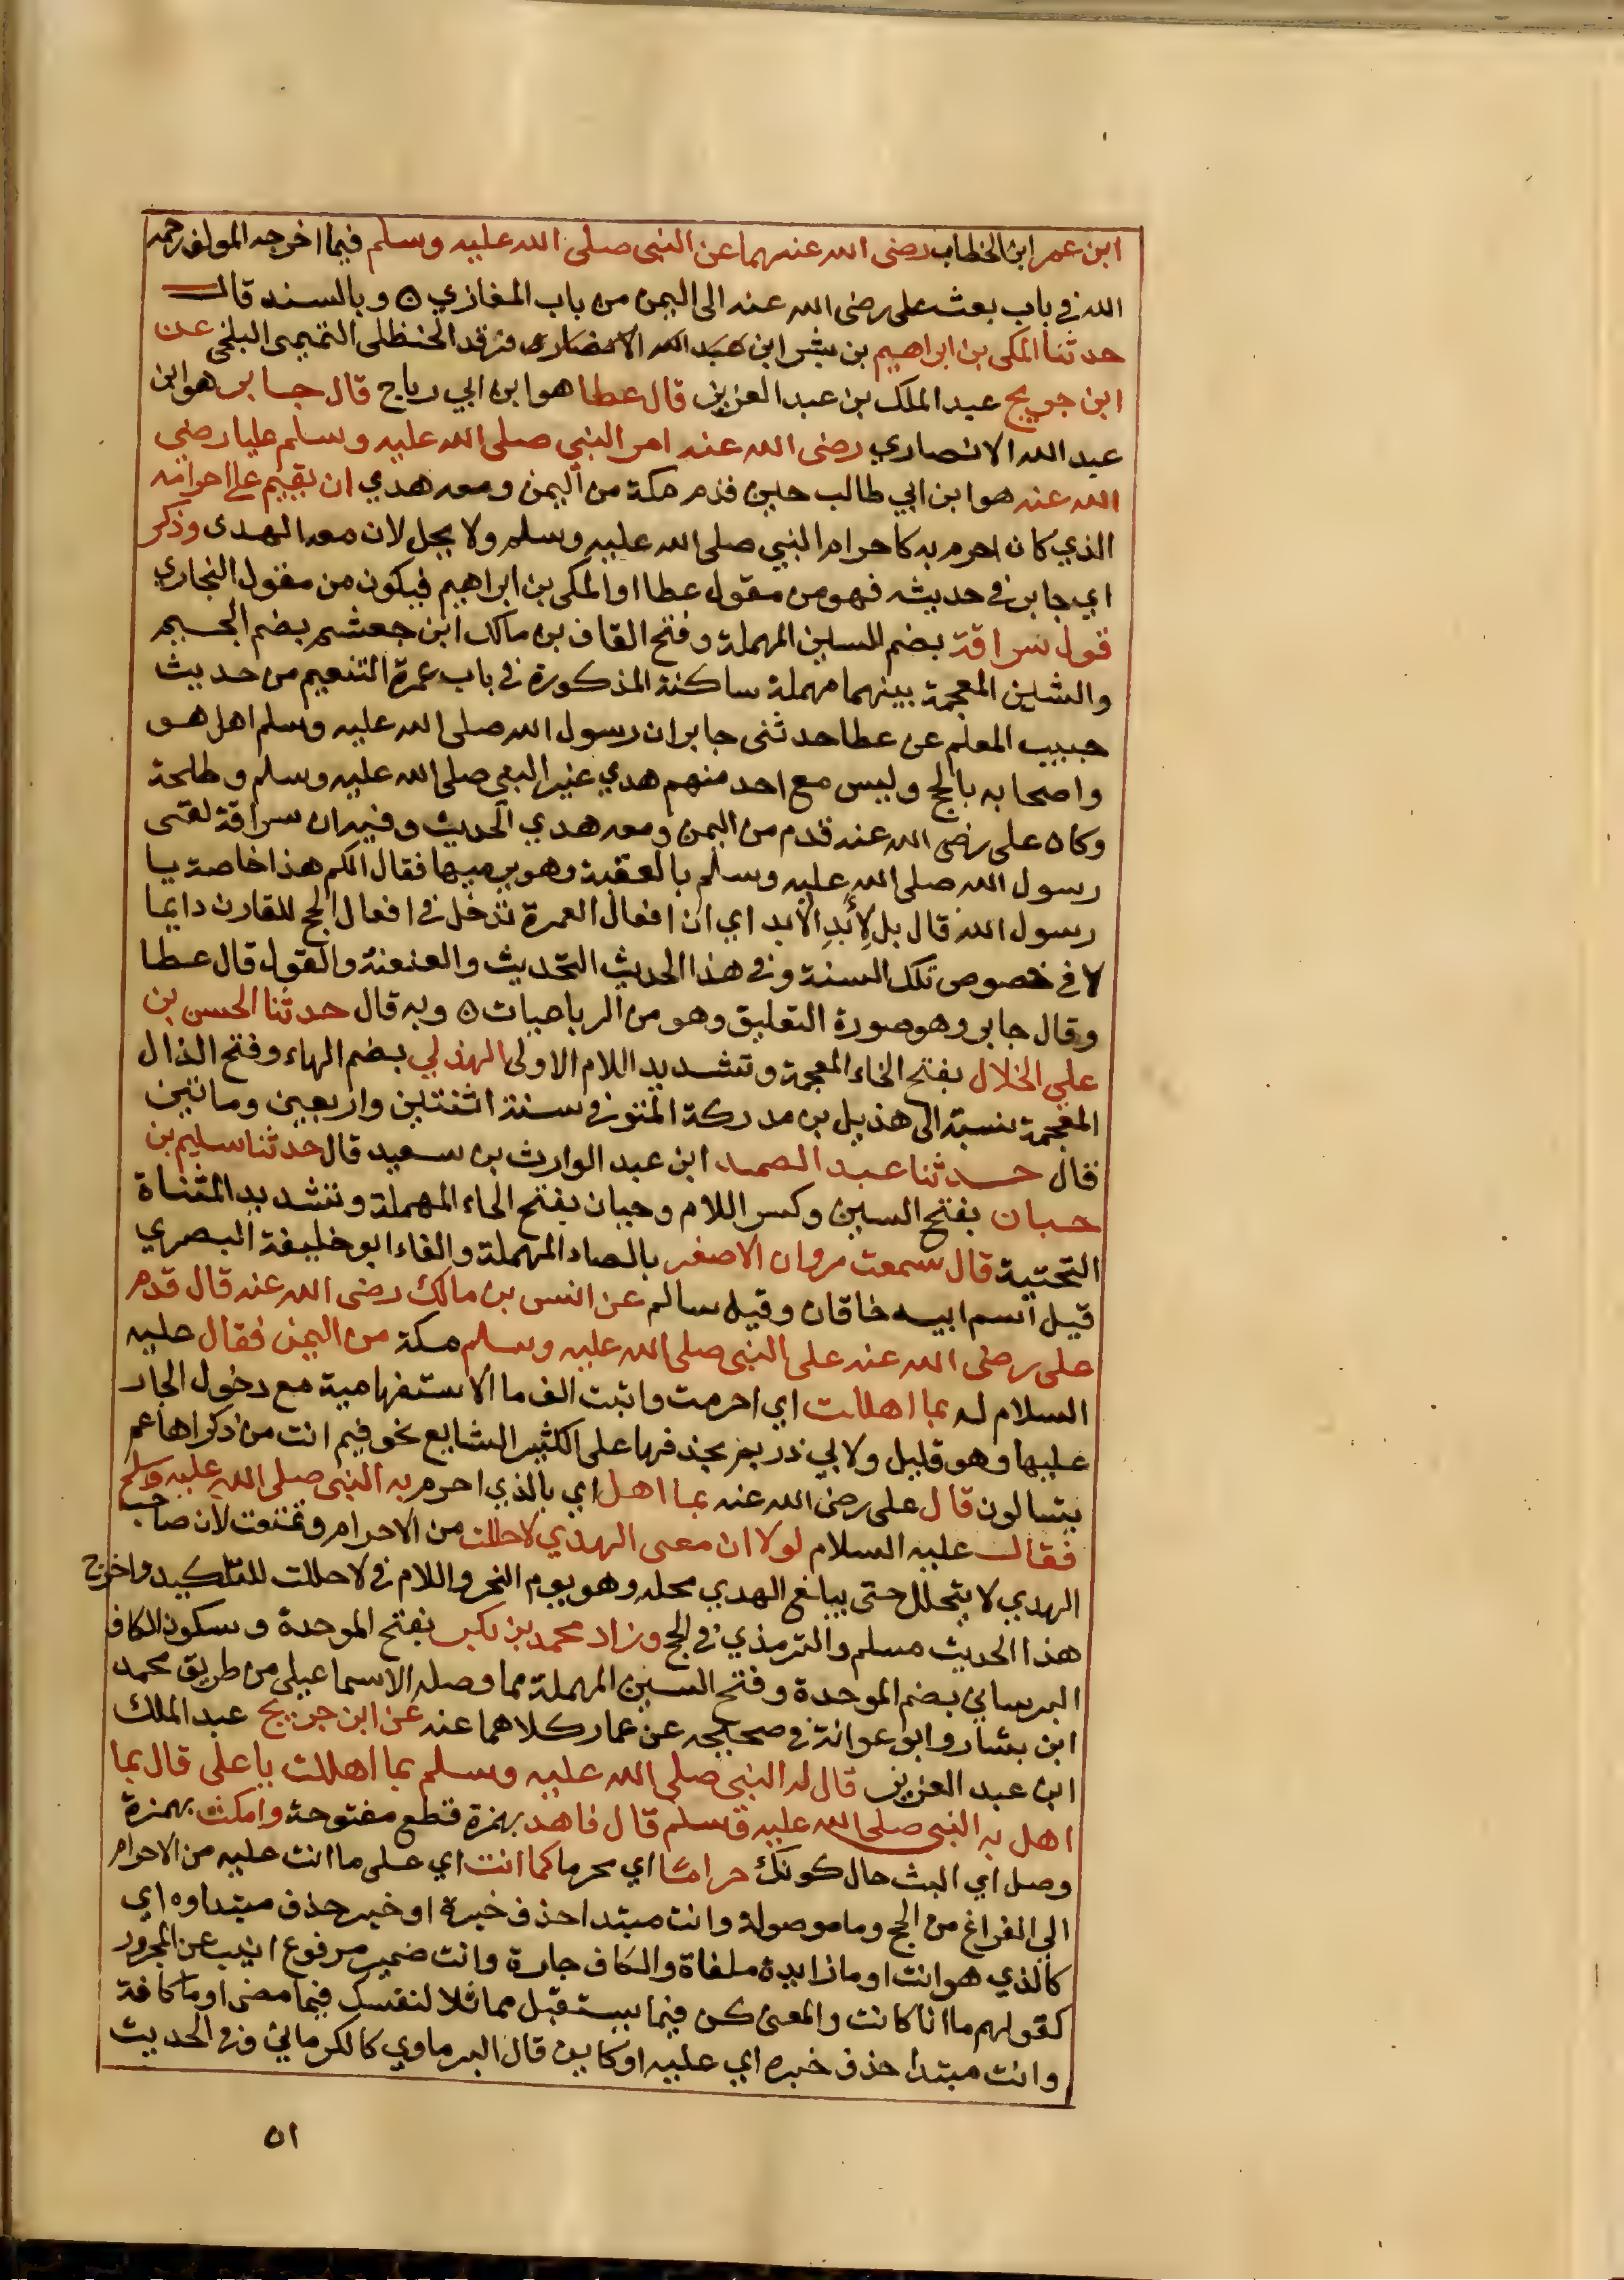 ابن عمر ابن الخطاب رضى الله عنهما عن النبى صلى الله عليه وسلم فيما اخرجه المولف رحمه
الله فى باب بعث على رضى الله عنه الى اليمن من باب المغازي ٥ وبالسند قال
حدثنا المكى بن ابراهيم بن بشر ابن عبد الله الانصارى فرقد الحنظلى التميمى البلخى عن
ابن جريج عبد الملك بن عبد العزيز قال عطا هو ابن ابي رباح قال جابر هو ابن
عبد الله الانصاري رضى الله عنه امر النبي صلى الله عليه وسلم عليا رضى
الله عنه هو ابن ابي طالب حين قدم مكة من اليمن ومعه هدي ان يقيم على احرامه
الذي كان احرم به كاحرام النبي صلى الله عليه وسلم ولا يحل لان معه الهدى وذكر
اي جابر فى حديثه فهو من مقول عطا او المكى بن ابراهيم فيكون من مقول البخاري
قول سراقة بضم السين المهملة وفتح القاف بن مالك ابن جعشم بضم الجيم
والشين المعجمة بينهما مهملة ساكنة المذكورة فى باب عمرة التنعيم من حديث
حبيب المعلم عن عطا حدثنى جابر ان رسول الله صلى الله عليه وسلم اهل هو
واصحابه بالحج وليس مع احد منهم هدي غير النبى صلى الله عليه وسلم وطلحة
وكان على رضى الله عنه قدم من اليمن ومعه هدي الحديث وفيه ان سراقة لقى
رسول الله صلى الله عليه وسلم بالعقبة وهو يرميها فقال الكم هذا خاصة يا
رسول الله قال بل لِأَبَدِ الأبد اي ان افعال العمرة تدخل فى افعال الحج للقارن دايما
لا فى خصوص تلك السنة وفى هذا الحديث التحديث والعنعنة والقول قال عطا
وقال جابر وهو صورة التعليق وهو من الرباعيات ٥ وبه قال حدثنا الحسن بن
علي الخلال بفتح الخاء المعجمة وتشديد اللام الاولى الهذلي بضم الهاء وفتح الذال
المعجمة نسبة الى هذيل بن مدركة المتوفى سنة اثنتين واربعين ومائتين
قال حدثنا عبد الصمد ابن عبد الوارث بن سعيد قال حدثنا سليم بن
حبان بفتح السين وكسر اللام وحبان بفتح الحاء المهملة وتشديد المثناة
التحتية قال سمعت مروان الاصفر بالصاد المهملة والفاء ابو خليفة البصري
قيل اسم ابيه خاقان وقيل سالم عن انس بن مالك رضى الله عنه قال قدم
على رضى الله عنه على النبى صلى الله عليه وسلم مكة من اليمن فقال عليه
السلام له بما اهللت اي احرمت واثبت الف ما الاستفهامية مع دخول الجار
عليها وهو قليل ولابي ذر بم بحذفها على الكثير الشايع نحو فيم انت من ذكراها عم
يتسالون قال على رضى الله عنه بما اهل اي بالذي احرم به النبى صلى الله عليه وسلم
فقال عليه السلام لولا ان معى الهدي لاحللت من الاحرام وتمتعت لان صاحب
الهدي لا يتحلل حتى يبلغ الهدي محله وهو يوم النحر واللام فى لاحللت للتاكيد واخرج
هذا الحديث مسلم والترمذي فى الحج وزاد محمد بن بكر بفتح الموحدة وسكون الكاف
البرساني بضم الموحدة وفتح السين المهملة مما وصله الاسماعيلى من طريق محمد
ابن بشار وابو عوانة فى صحيحه عن عمار كلاهما عنه عن ابن جريج عبد الملك
ابن عبد العزيز قال له النبى صلى الله عليه وسلم بما اهللت يا على قال بما
اهل به النبى صلى الله عليه وسلم قال فاهد بهمزة قطع مفتوحة وامكث بهمزة
وصل اي البث حال كونك حراما اي محرما كما انت اي على ما انت عليه من الاحرام
الى الفراغ من الحج وما موصولة وانت مبتدا حذف خبره او خبر حذف مبتداوه اي
كالذي هو انت او ما زايدة ملغاة والكاف جارة وانت ضمير مرفوع انيب عن المجرور
كقولهم ما انا كانت والمعنى كن فيما يستقبل مماثلا لنفسك فيما مضى او ما كافة
وانت مبتدا حذف خبره اي عليه او كاين قال البرماوي كالكرماني وفى الحديث
٥١